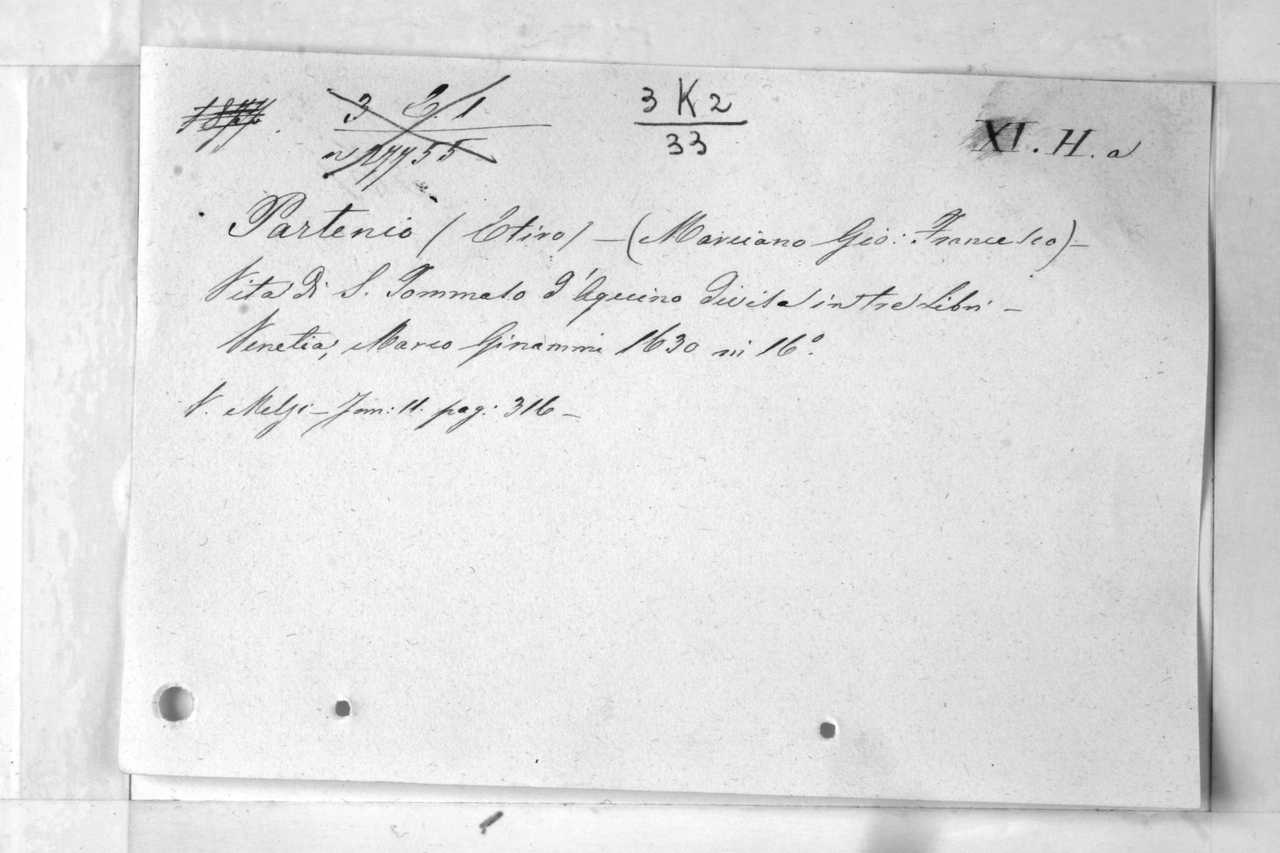 3 E. 1 3 K 2 XI. H. a
n 27755 33
Partenio (Etiro) – (Marciano Gio: Francesco) –
Vita di S. Tommaso d'Aquino divisa in tre Libri –
Venetia, Marco Ginammi 1630 in 16.º
V. Melzi – Tom: II. pag: 316 –